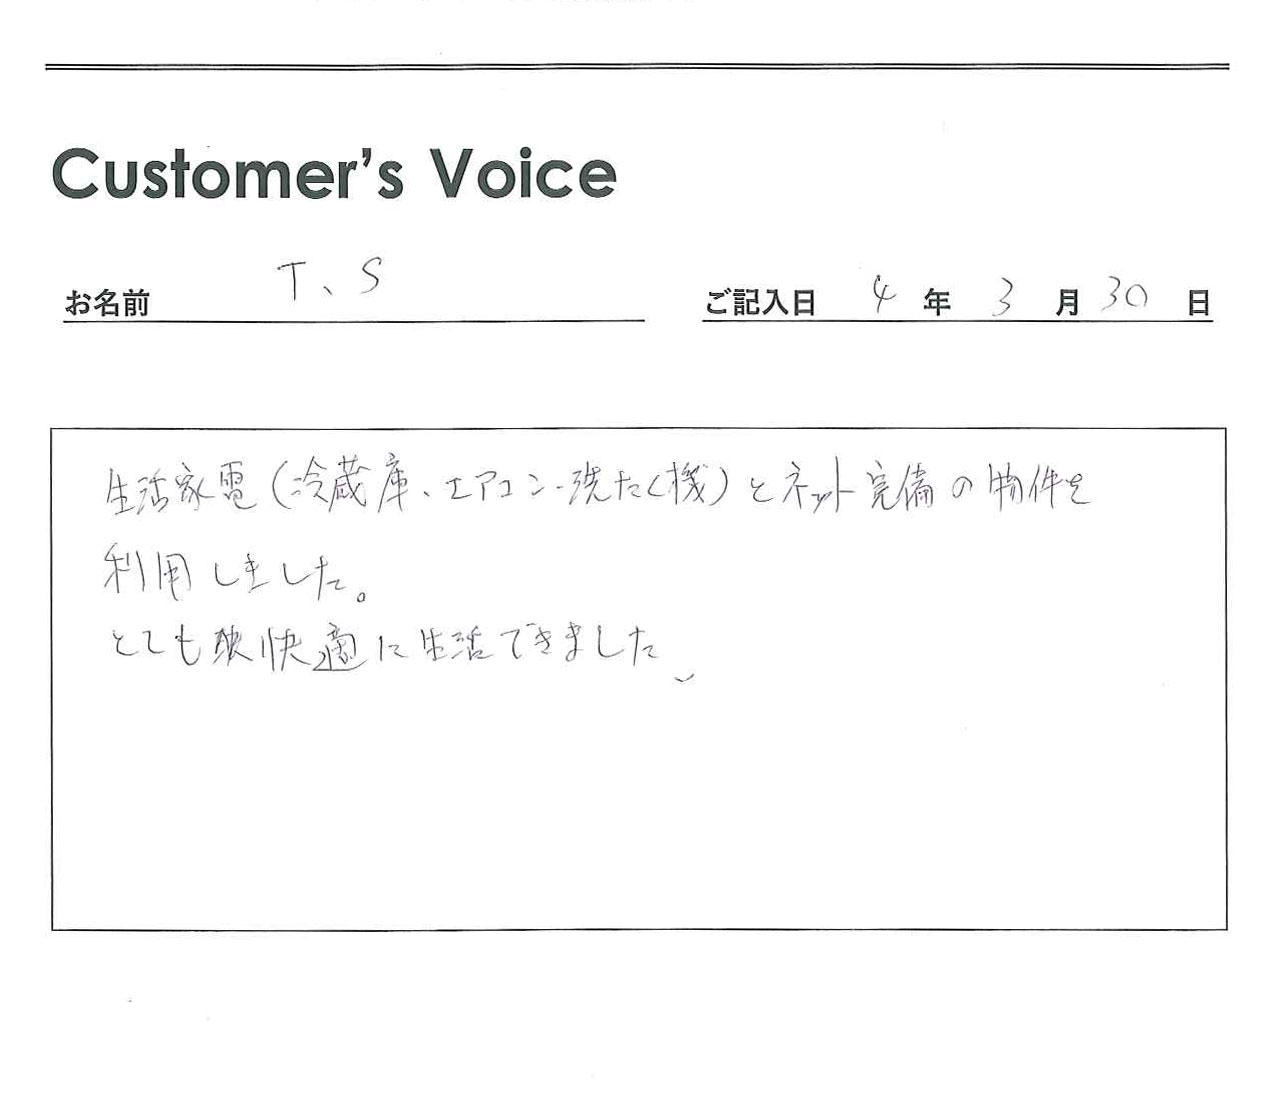 Customer's Voice
お名前 T、S
ご記入日 4年 3月 30日
生活家電(冷蔵庫、エアコン、洗たく機)とネット完備の物件を
利用しました。
とても快適に生活できました